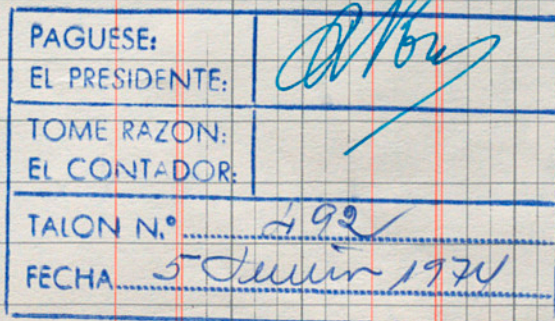 PAGUESE:
EL PRESIDENTE:
TOME RAZON:
EL CONTADOR:
TALON N.º 492
FECHA 5 Junio 1974